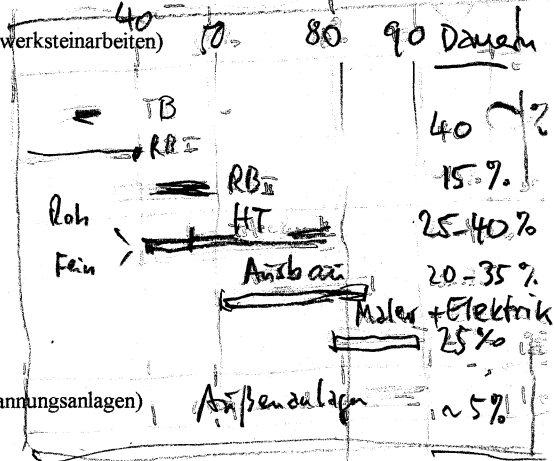 40
werksteinarbeiten) 50 80 90 Dauern
TB
40 %
RB I
15 %
RB II
Roh HT 25-40 %
Fein
Ausbau 20-35 %
Maler + Elektrik
25%
annungsanlagen) Außenanlagen ~5%